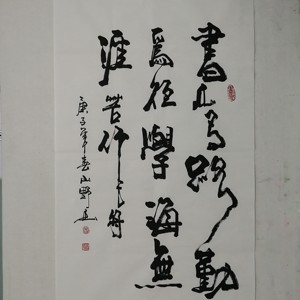 書山有路勤
為徑學海無
涯苦作舟
庚子年春山野